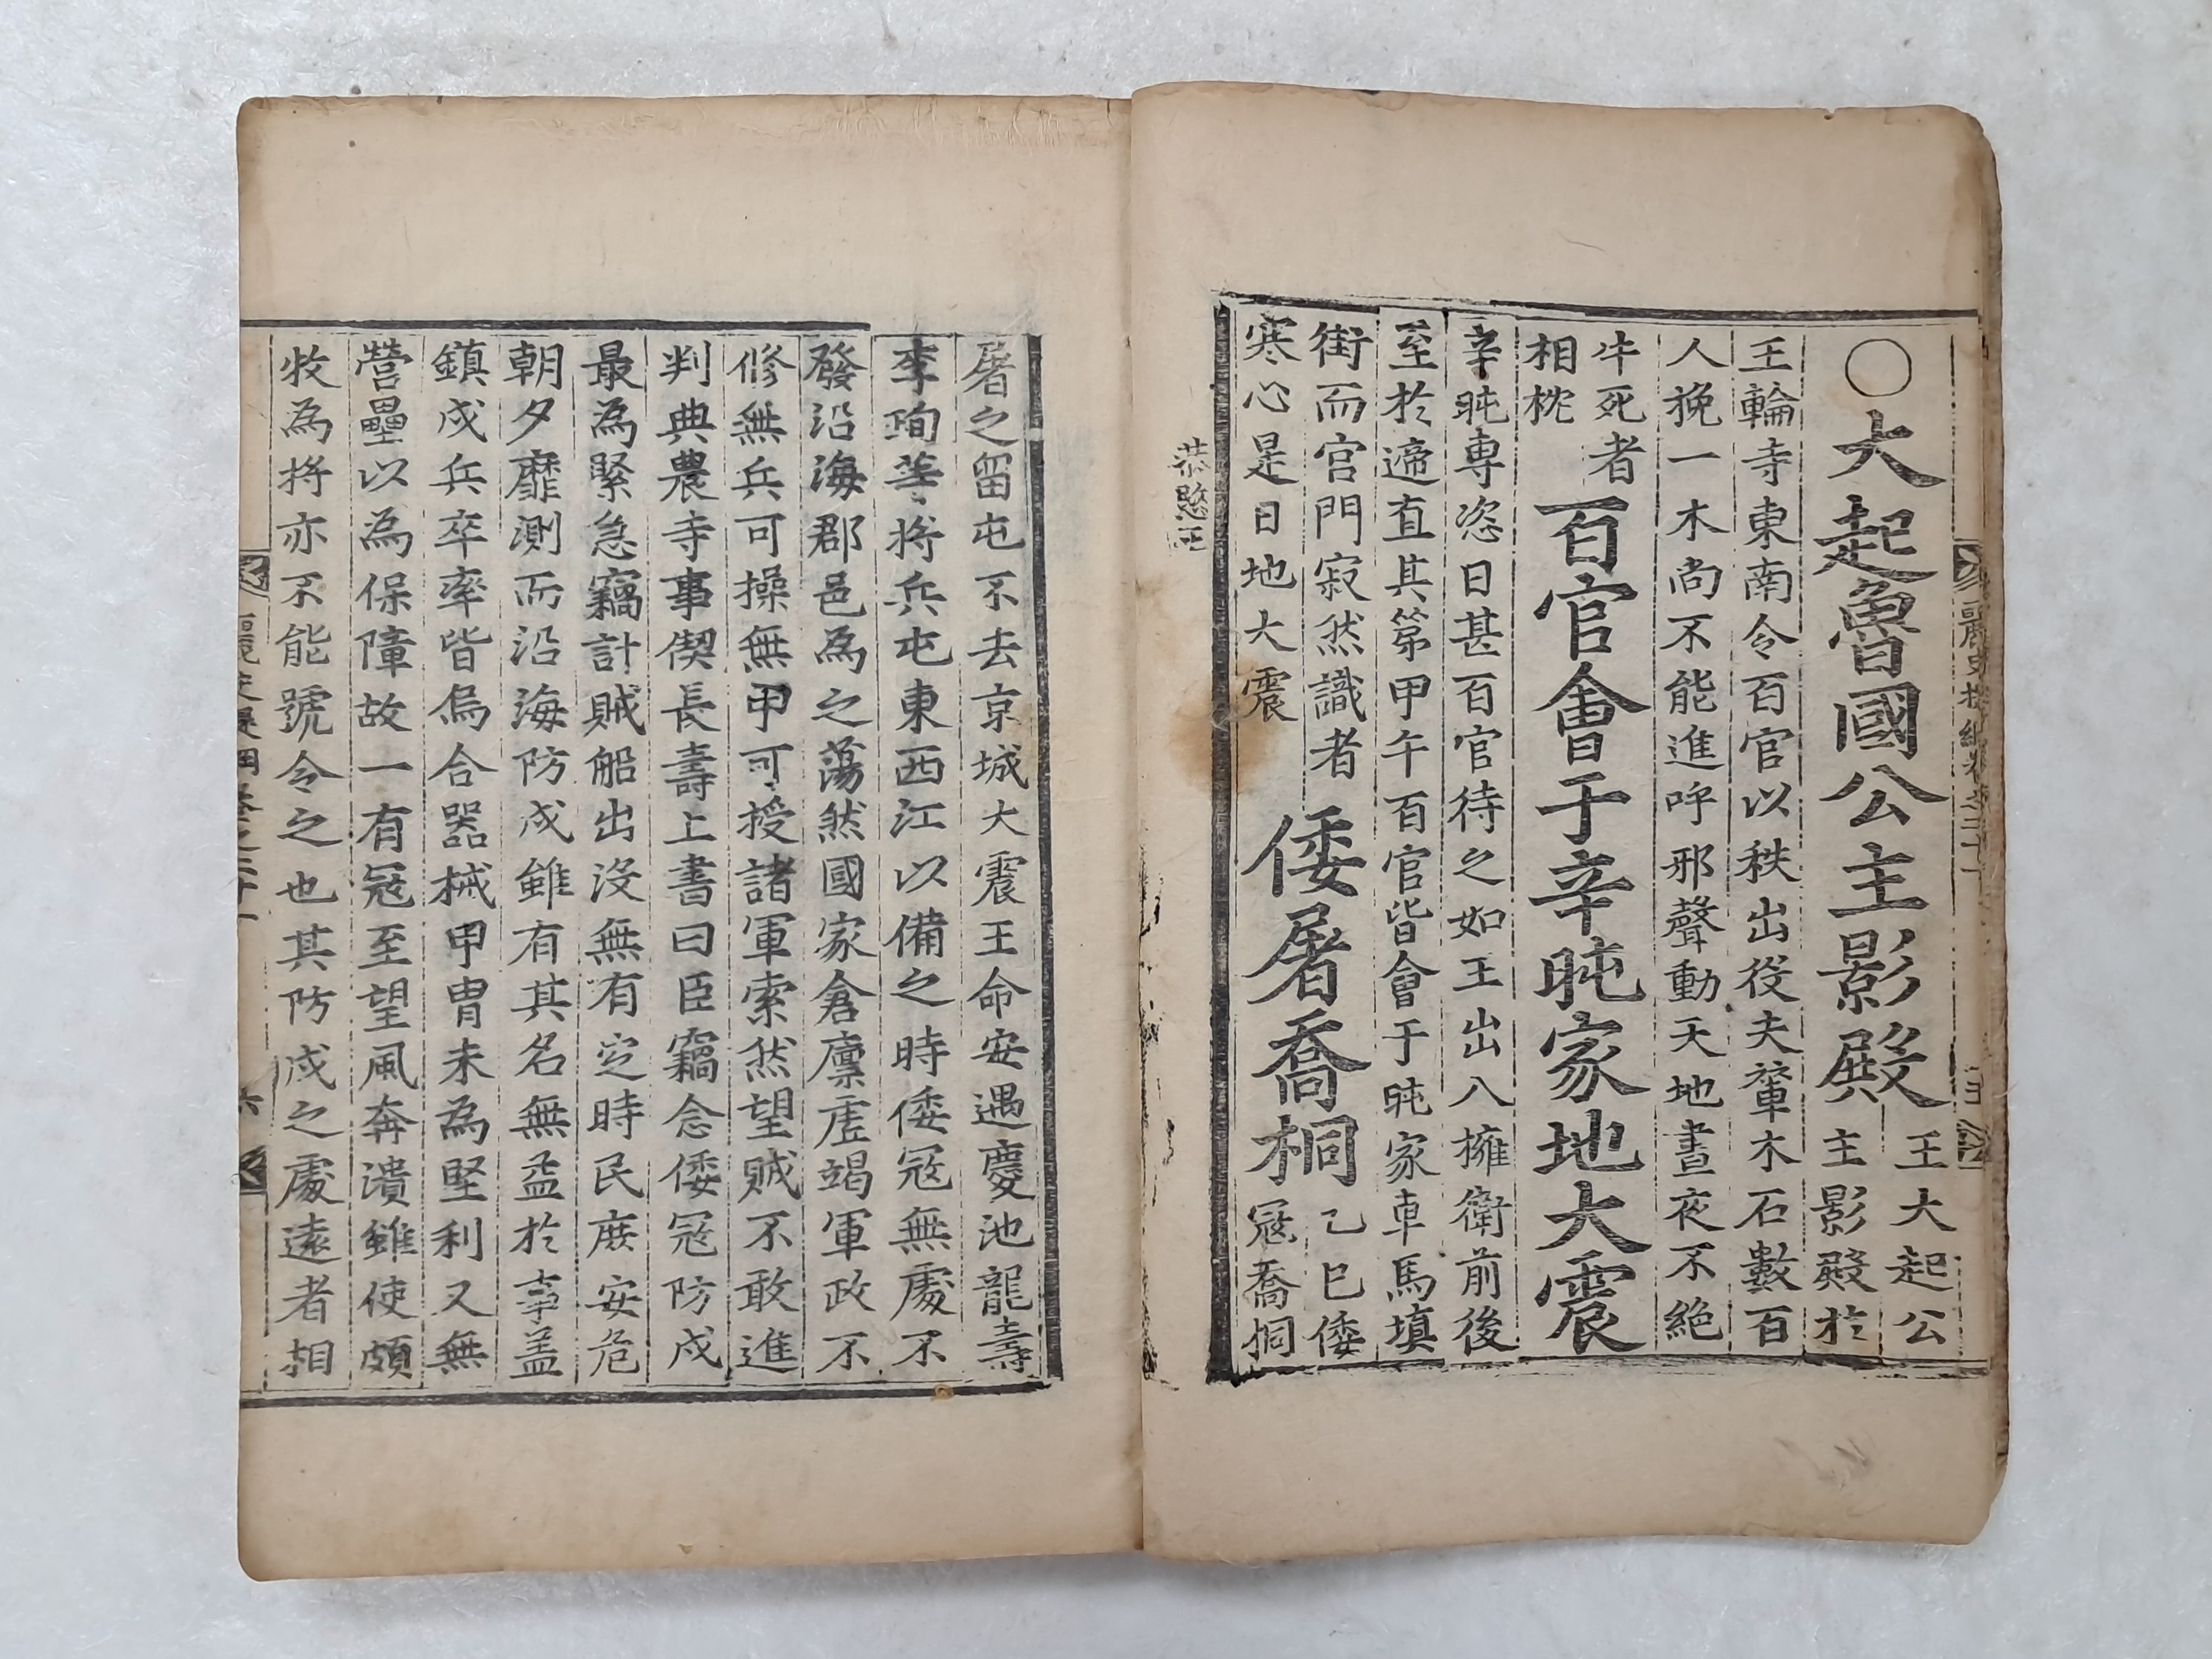 〇大起魯國公主影殿王大起公
主影殿於
王輪寺東南令百官以秩出役夫輦木石數百
人挽一木尚不能進呼邪聲動天地晝夜不絶
牛死者
相枕
百官會于辛旽家地大震
辛旽專恣日甚百官待之如王出入擁衛前後
至於遆直其第甲午百官皆會于旽家車馬塡
街而宮門寂然識者
寒心是日地大震
倭屠喬桐乙巳倭
寇喬桐
恭愍王
屠之留屯不去京城大震王命安遇慶池龍壽
李珣等將兵屯東西江以備之時倭寇無處不
發沿海郡邑為之蕩然國家倉廩虛竭軍政不
修無兵可操無甲可授諸軍索然望賊不敢進
判典農寺事偰長壽上書曰臣竊念倭寇防戍
最為緊急竊計賊船出沒無有定時民庶安危
朝夕靡測而沿海防戍雖有其名無益於事盖
鎮戍兵卒率皆烏合器械甲冑未為堅利又無
營壘以為保障故一有寇至望風奔潰雖使頗
牧為將亦不能號令之也其防戍之處遠者相
麗史提綱卷之二十一
六